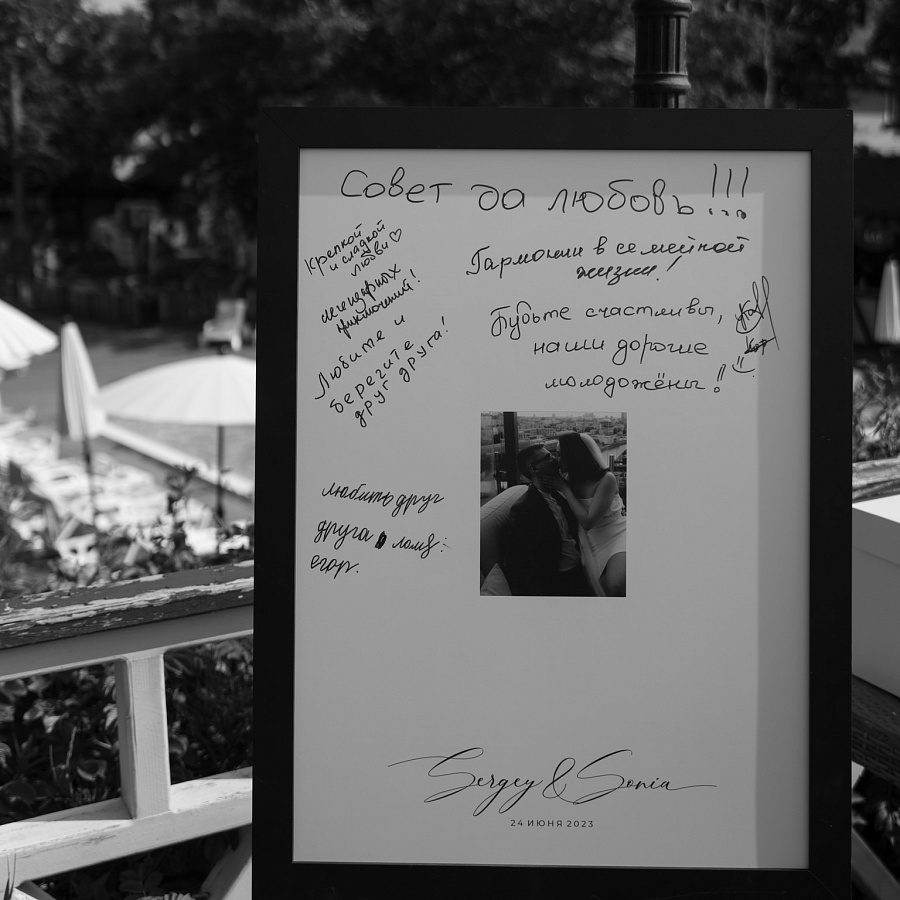 Совет да любовь!!!
Крепкой
и сладкой
любви♡
легендарных
приключений!
Любите и
берегите
друг друга!
Гармонии в семейной
жизни!
Будьте счастливы,
наши дорогие
молодожёны!
любить друг
друга
егор.
Sergey & Sonia
24 ИЮНЯ 2023